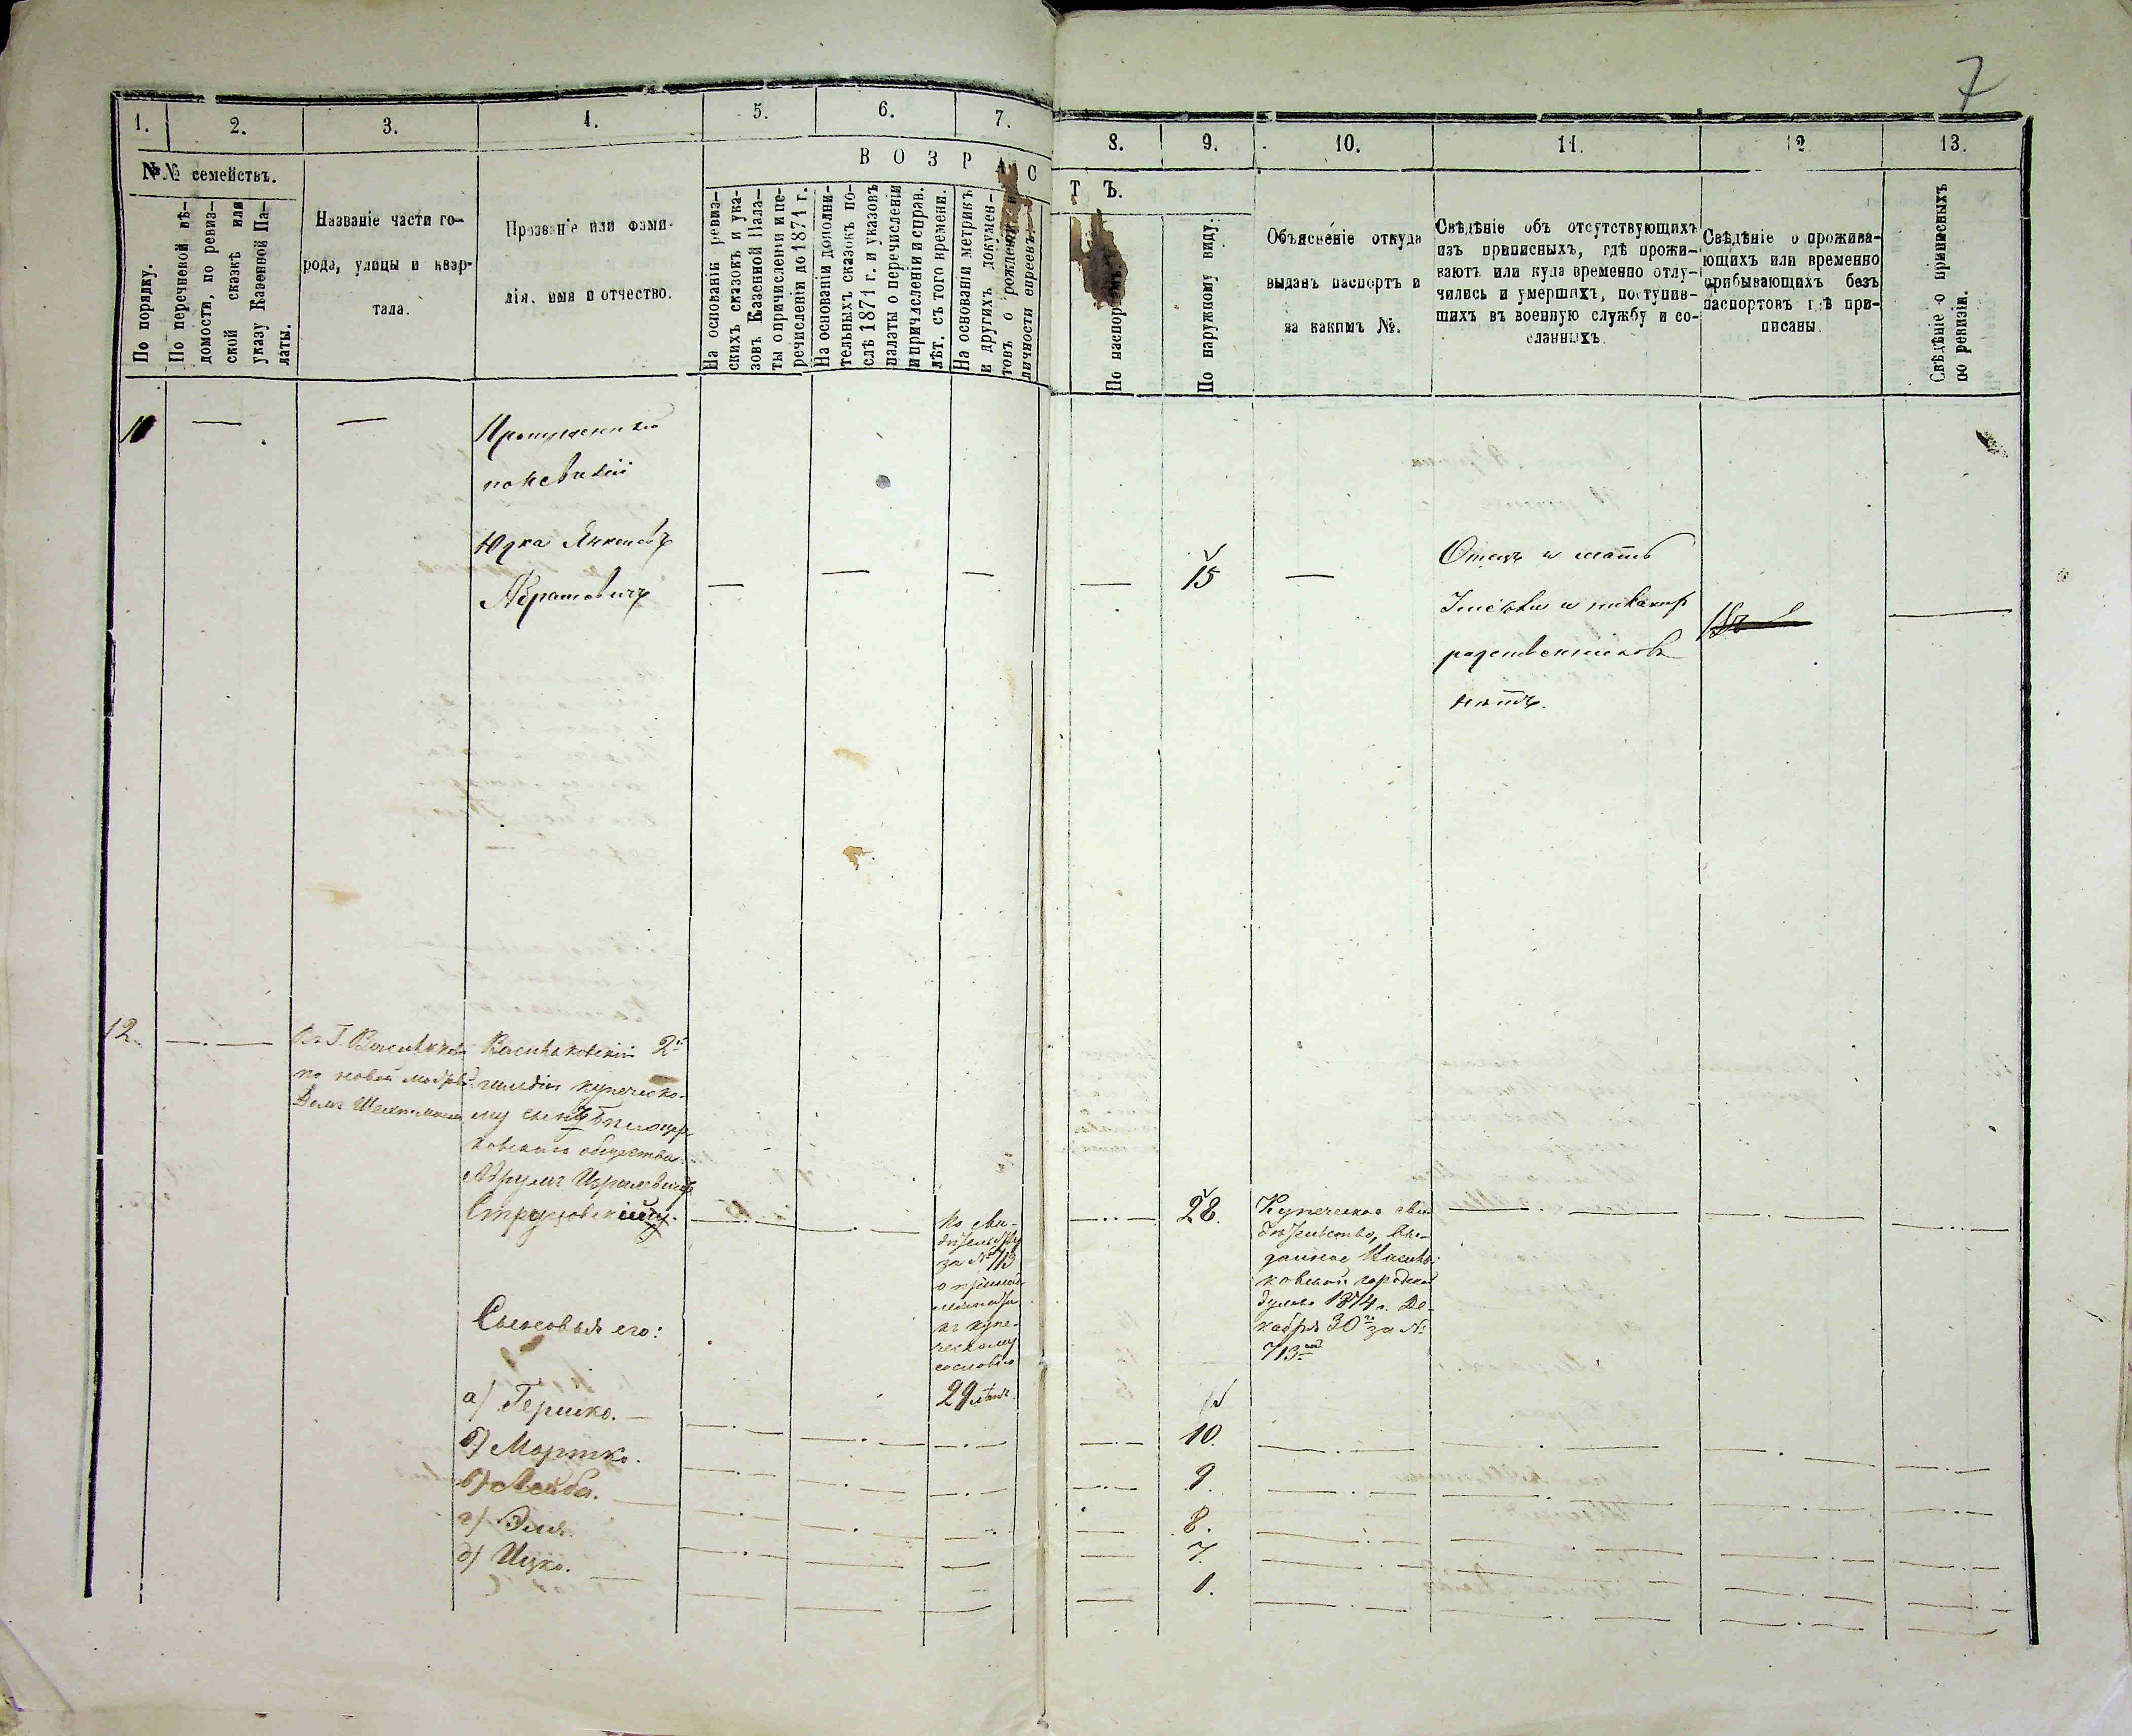 7
1. 2. 3. 4. 5. 6. 7. 8. 9. 10. 11. 12 13.
№№ семействъ.
По порядку.
По перечневой вѣ-
домости, по ревиз-
ской сказкѣ или
указу Казенной Па-
латы.
Названіе части го-
рода, улицы и квар-
тала.
Прозваніе или фами-
лія, имя и отчество.
ВОЗРАС
ТЪ.
На основаніи ревиз-
скихъ сказокъ и ука-
зовъ Казенной Пала-
ты о причисленіи и пе-
речисленіи до 1871 г.
На основаніи дополни-
тельныхъ сказокъ по-
слѣ 1871 г. и указовъ
палаты о перечисленіи
и причисленіи и справ.
лѣт. съ того времени.
На основаніи метрикъ
и другихъ докумен-
товъ о рожденіи и
личности евреевъ.
По паспортамъ.
По наружному виду:
Объясненіе откуда
выданъ паспортъ и
за какимъ №.
Свѣдѣніе объ отсутствующихъ
изъ приписныхъ, гдѣ прожи-
ваютъ или куда временно отлу-
чились и умершихъ, поступив-
шихъ въ военную службу и со-
сланныхъ.
Свѣдѣніе о прожива-
ющихъ или временно
прибывающихъ безъ
паспортовъ гдѣ при-
писаны.
Свѣдѣніе о приписныхъ
по ревизіи.
Пропущенный
по ревизіи
Юдка Янкелевъ
Абрамовичъ
15
Отецъ и мать
и никакихъ
родственниковъ
нѣтъ.
12.
Въ Г. Васильковѣ
по новой
Домъ
Васильковскій 2й
гильдіи купеческо-
му сыну Бѣлоцер-
ковскаго общества
Абрумъ Израилевичъ
по сви-
дѣтельству
за № 713
о
къ купе-
ческому
сословію
29 лѣтъ.
28.
Купеческое сви-
дѣтельство, вы-
данное Василь-
ковской городской
думою 1874 г. Де-
кабря 30го за №
713
Сыновья его:
а) Гершко.
10.
б) Мортко.
9.
в) Лейба.
8.
г) Эля.
7.
д) Ицко.
1.